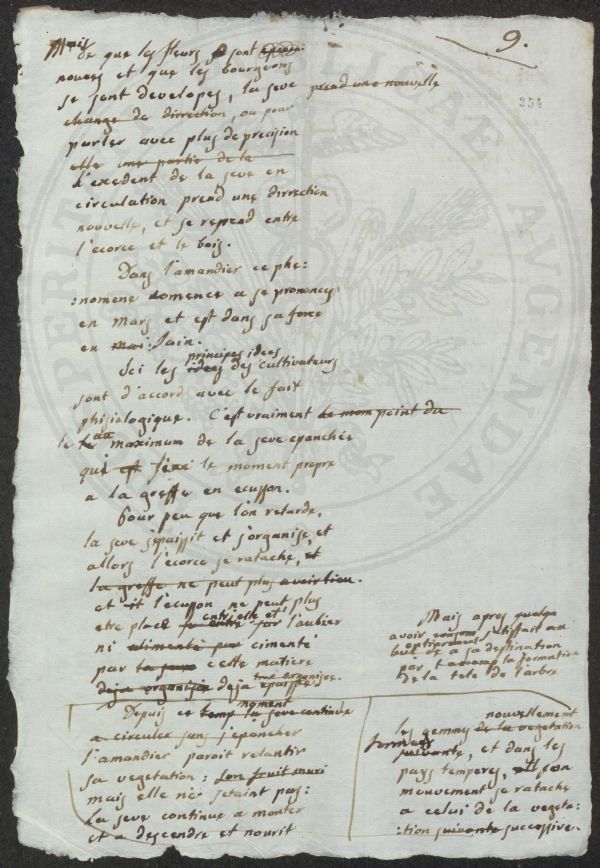 9.
254
Mais
de que les fleurs sont
nouees et que les bourgeons
se sont developes, la seve prend une nouvelle
change de dirrection, ou pour
parler avec plus de precision
elle une partie de la
l'excedent de la seve en
circulation prend une dirrection
nouvelle, et se repend entre
l'ecorce et le bois.
Dans l'amandier ce phe:
:nomene comence a se prononcer
en Mars et est dans sa force
en mai Juin.
principes idees
Ici les idees des cultivateurs
sont d'accord avec le fait
phisiologique. C'est vraiment le mom point du
le au maximum de la seve epanchée
qui est le moment propre
a la greffe en ecusson.
Pour peu que l'on retarde,
la seve s'epaissit et s'organise, et
allors l'ecorce se ratache, et
la greffe ne peut plus avoir lieu.
et l'ecusson ne peut plus
entr'elle et
etre placé l'aubier
ni alimenté cimenté
par cette matiere
organisée
deja organisée deja epaissie.
Mais apres quelque
avoir satisfait au
a sa destination
par la formation
de la tete de l'arbre
moment
Depuis ce temp la seve continue
a circuler sans s'epancher
l'amandier paroit relantir
sa vegetation: son fruit muri
mais elle n'es s'etaint pas:
La seve continue a monter
et a descendre et nourit
nouvellement
les gemmes de la vegetation
formées
suivante, et dans les
pays temperes, son
mouvement se ratache
a celui de la vegeta:
:tion suivante successive.